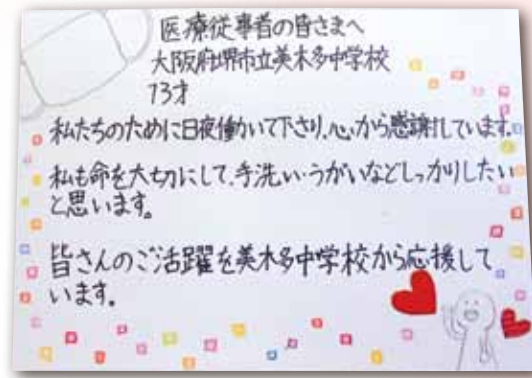 医療従事者の皆さまへ
大阪府堺市立美木多中学校
13才
私たちのために日夜働いて下さり、心から感謝しています。
私も命を大切にして、手洗い・うがいなどしっかりしたい
と思います。
皆さんのご活躍を美木多中学校から応援して
います。